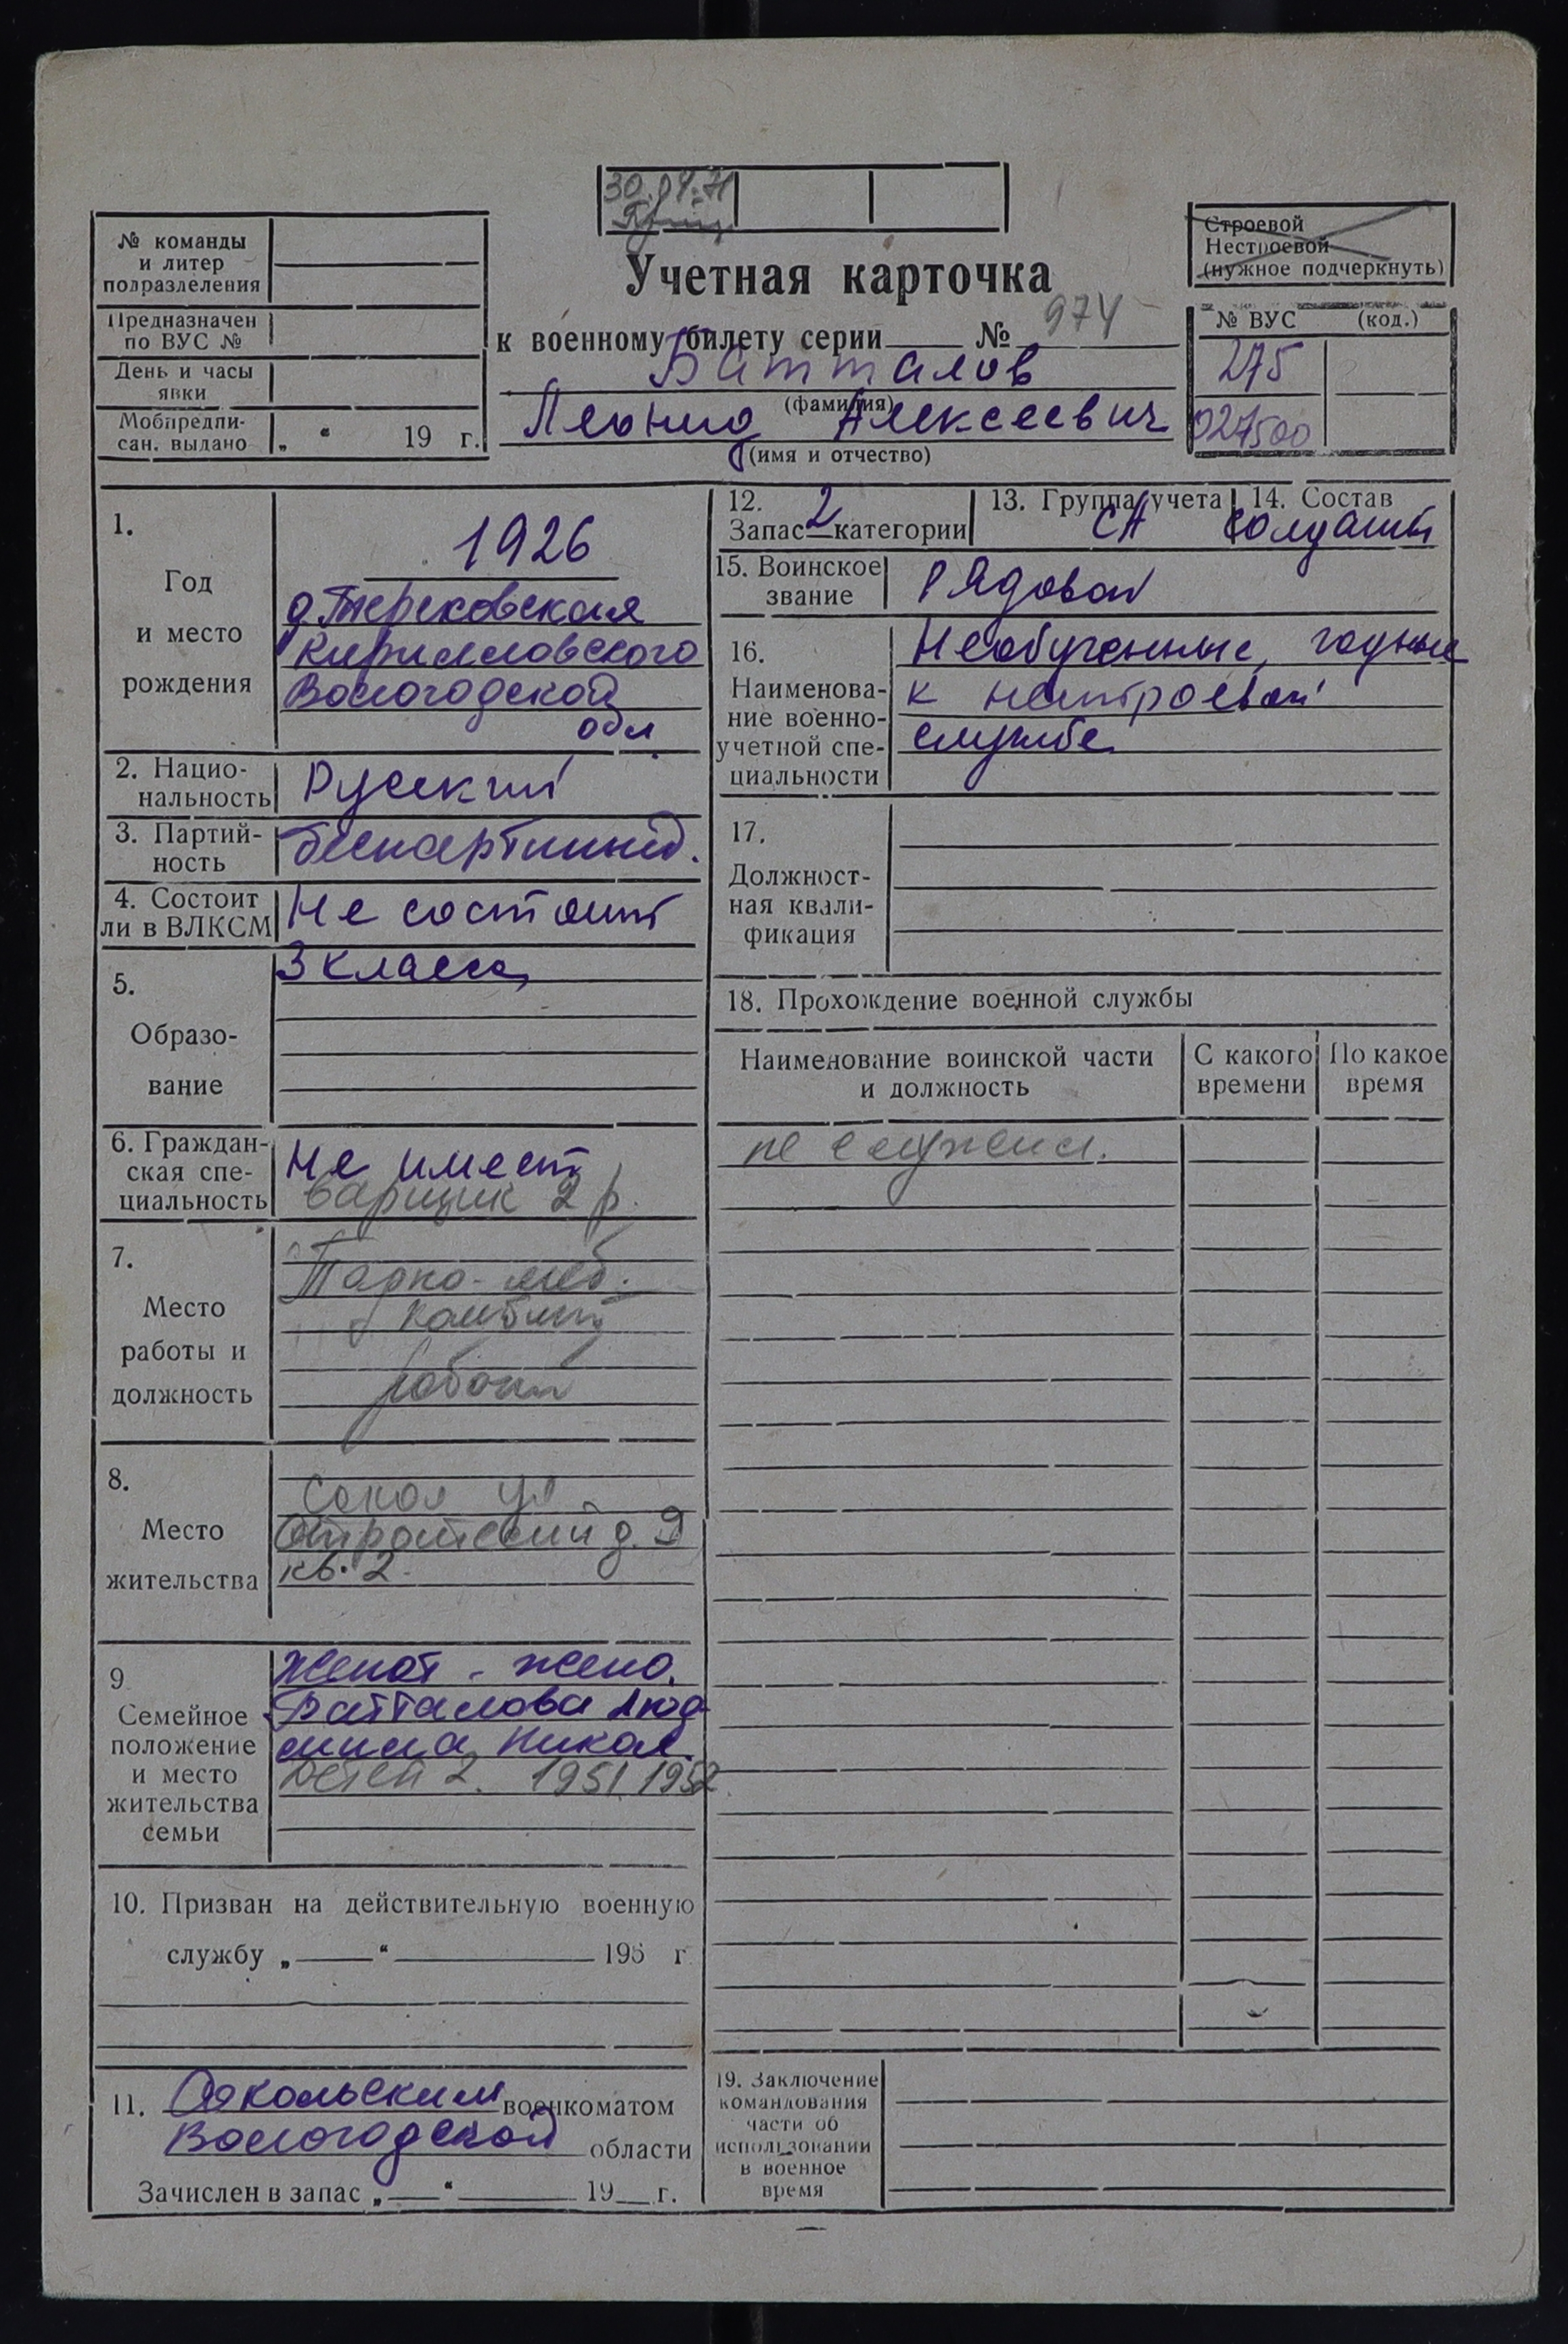 30.04.71
№ команды
и литер
подразделения
Предназначен
по ВУС №
День и часы
явки
Мобпредпи-
сан. выдано „ “ 19 г.
Строевой
Нестроевой
(нужное подчеркнуть)
Учетная карточка
к военному билету серии № 974
Батталов
(фамилия)
Леонид Алексеевич
(имя и отчество)
№ ВУС (код.)
275
027500
1.
Год
и место
рождения
1926
д. Терековская
Кирилловского
Вологодской
обл
2. Нацио-
нальность
Русский
3. Партий-
ность
беспартийный.
4. Состоит
ли в ВЛКСМ
Не состоит
5.
Образо-
вание
3 класса
6. Граждан-
ская спе-
циальность
Не имеет
варщик 2 р.
7.
Место
работы и
должность
Тарно-меб.
комбинат
рабочий
8.
Место
жительства
Сокол ул.
д. 9
кв. 2.
9
Семейное
положение
и место
жительства
семьи
Женат - жена.
Батталова Люд
мила Никол.
Детей 2. 1951, 1952.
10. Призван на действительную военную
службу „ “ 195 г.
11. Сокольским военкоматом
Вологодской области
Зачислен в запас „ “ 19 г.
12.
Запас 2 категории
13. Группа учета
СА
14. Состав
солдаты
15. Воинское
звание
Рядовой
16.
Наименова-
ние военно-
учетной спе-
циальности
Необученные, годные
к нестроевой
службе
17.
Должност-
ная квали-
фикация
18. Прохождение военной службы
Наименование воинской части
и должность
С какого
времени
По какое
время
не служил.
19. Заключение
командования
части об
использовании
в военное
время